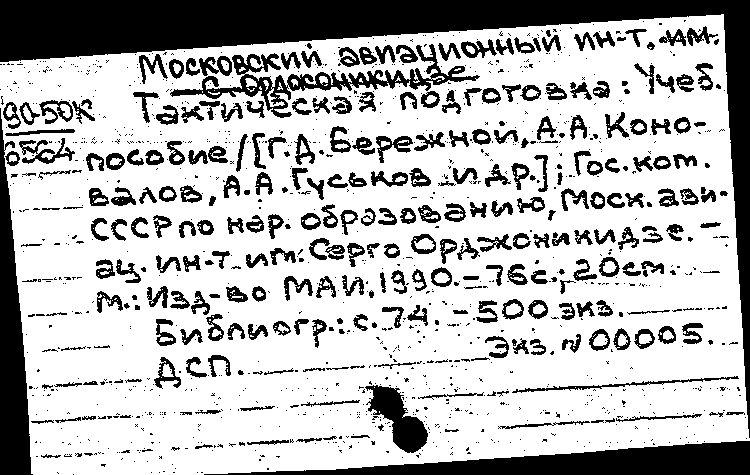 Московский авиационный ин-т. им.
С. Орджоникидзе
90-50К Тактическая подготовка: Учеб.
6564 пособие / [Г.Д. Бережной, А.А. Коно-
валов, А.А. Гуськов и др.]; Гос. ком.
СССР по нар. образованию, Моск. ави-
ац. ин-т им. Серго Орджоникидзе. -
М.: Изд-во МАИ, 1990. - 76с.; 20см.
Библиогр.: с. 74. - 500 экз.
ДСП. Экз. № 00005.